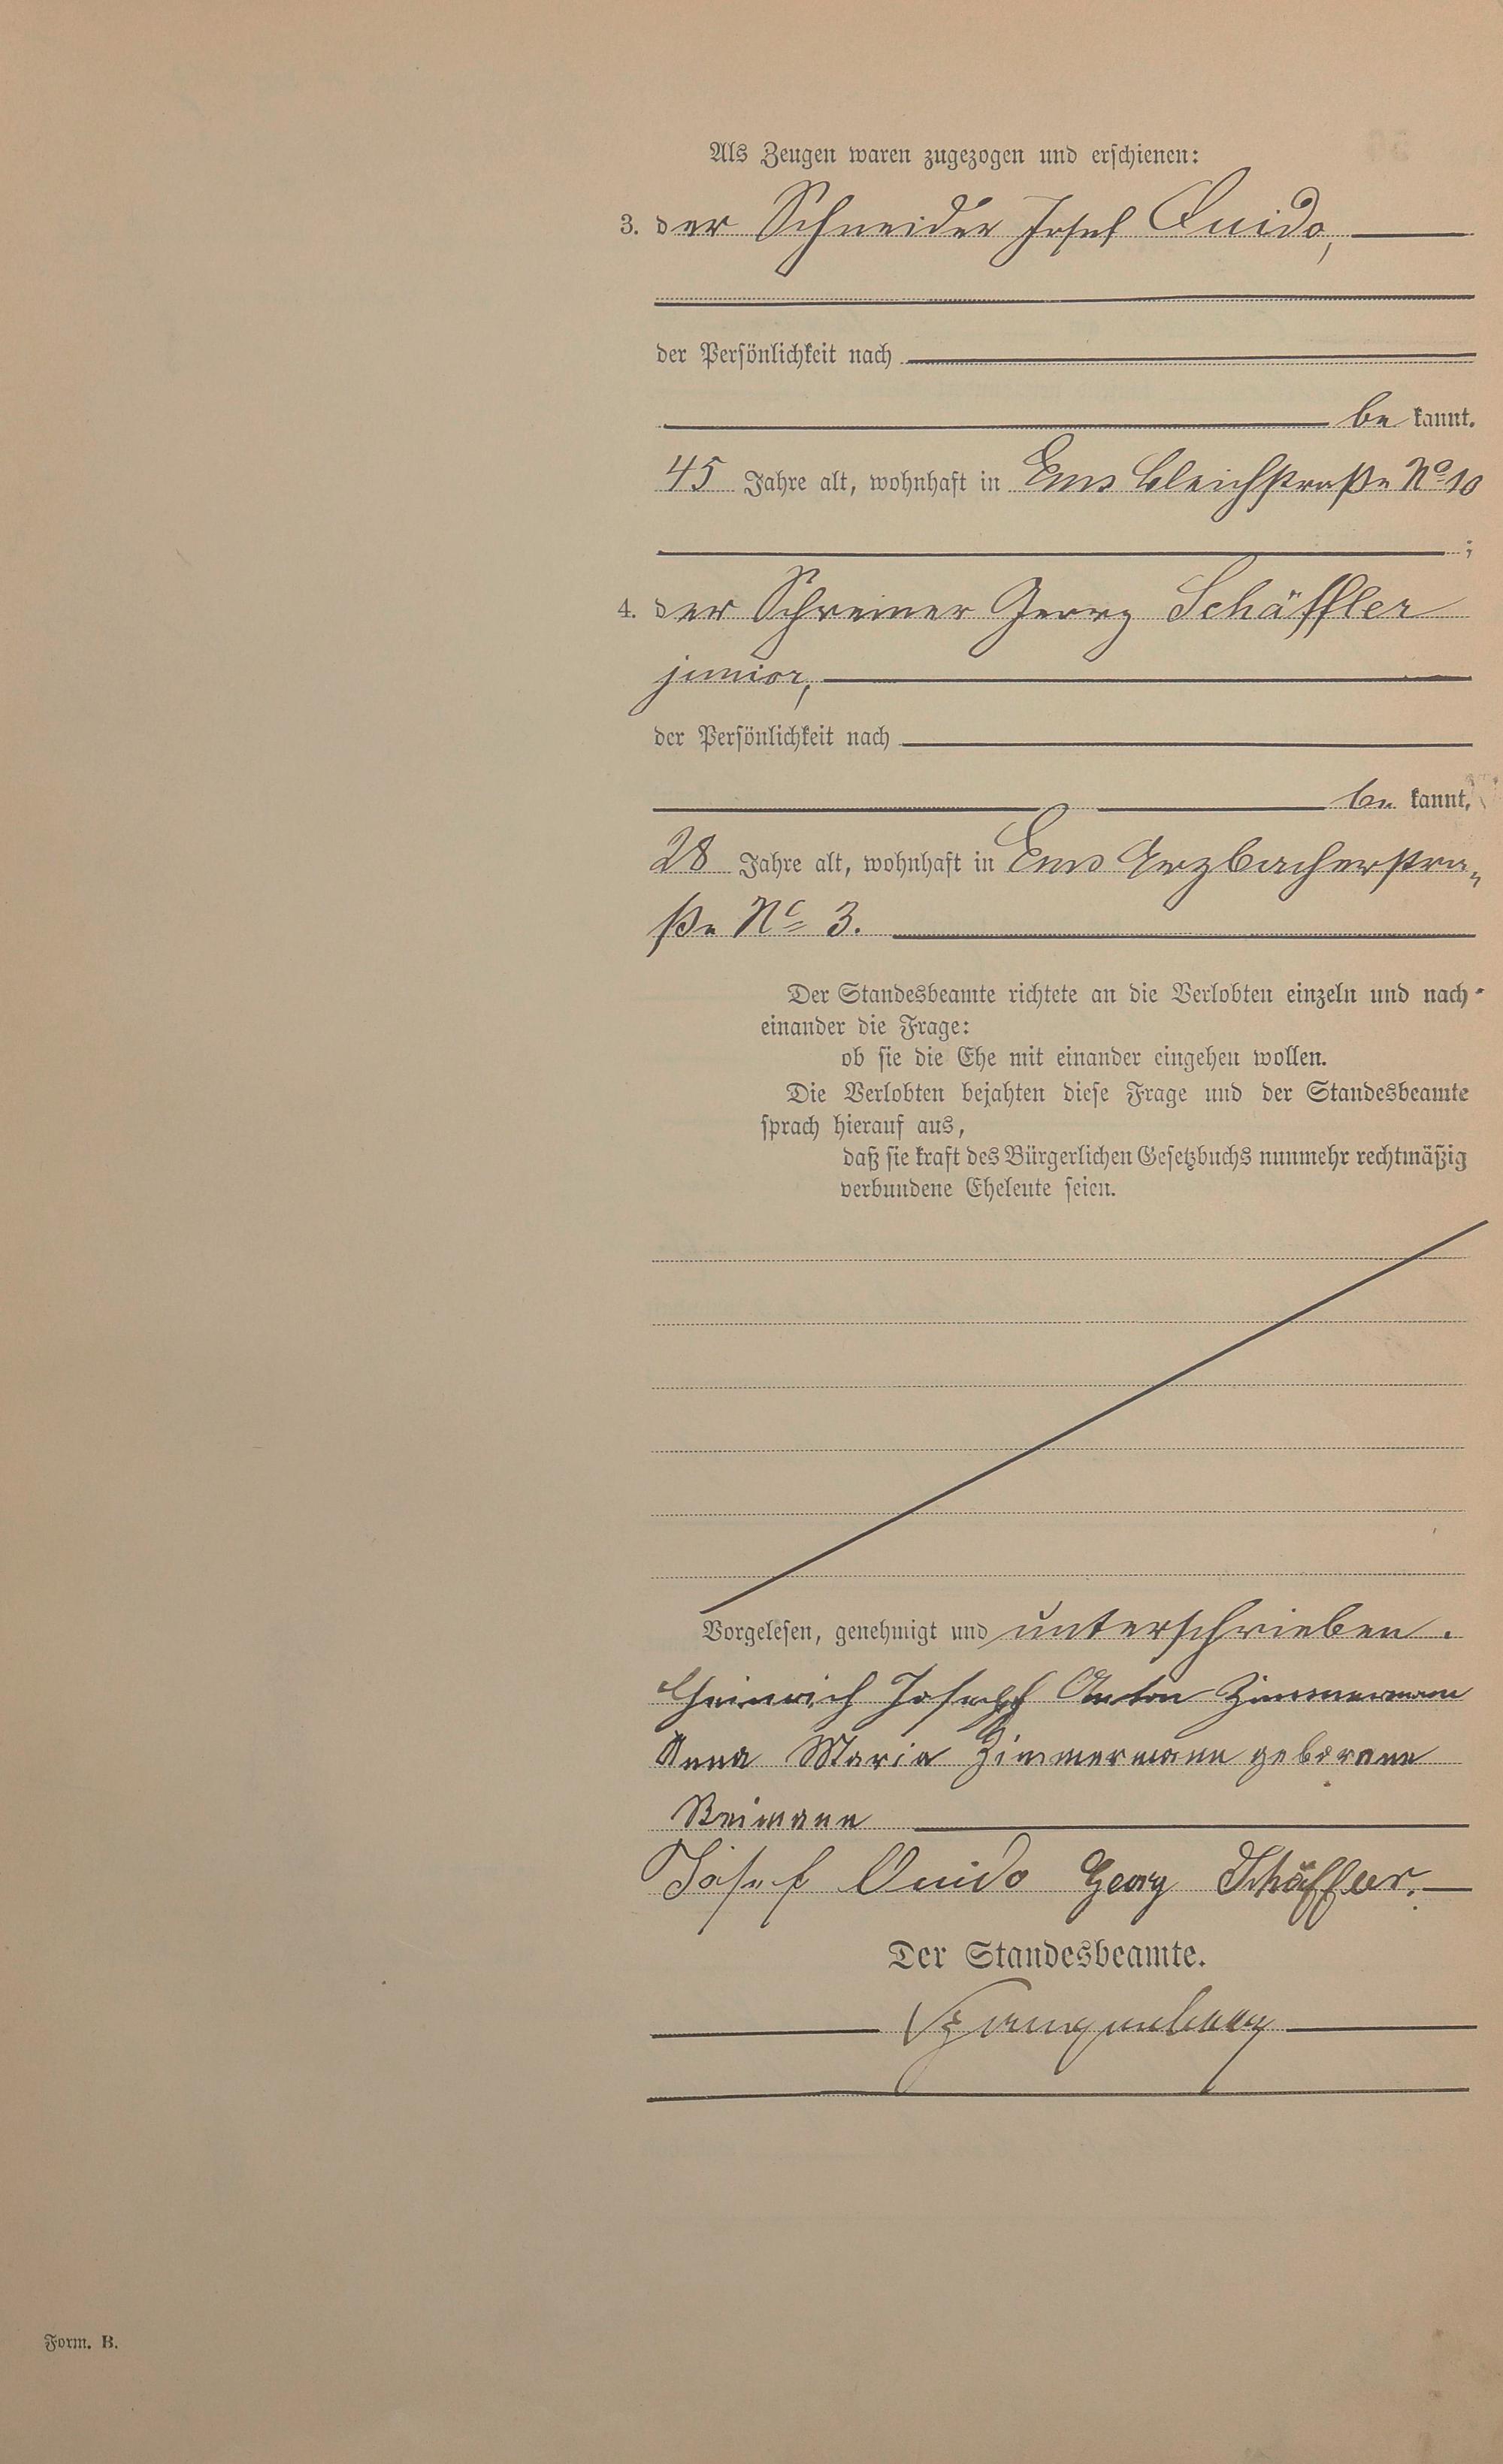 Als Zeugen waren zugezogen und erschienen:
3. der Schneider Josef Quido,
der Persönlichkeit nach
be kannt.
45 Jahre alt, wohnhaft in Ems Bleichstraße No 10
;
4. der Schreiner Georg Schäffler
junior,
der Persönlichkeit nach
be kannt,
28 Jahre alt, wohnhaft in Ems Arzbacherstra-
ße No 3.
Der Standesbeamte richtete an die Verlobten einzeln und nach-
einander die Frage:
ob sie die Ehe mit einander eingehen wollen.
Die Verlobten bejahten diese Frage und der Standesbeamte
sprach hierauf aus,
daß sie kraft des Bürgerlichen Gesetzbuchs nunmehr rechtmäßig
verbundene Eheleute seien.
Vorgelesen, genehmigt und unterschrieben.
Heinrich Joseph Anton Zimmermann
Anna Maria Zimmermann geborene
Reimann
Josef Quido Georg Schäffler.
Der Standesbeamte.
Form. B.